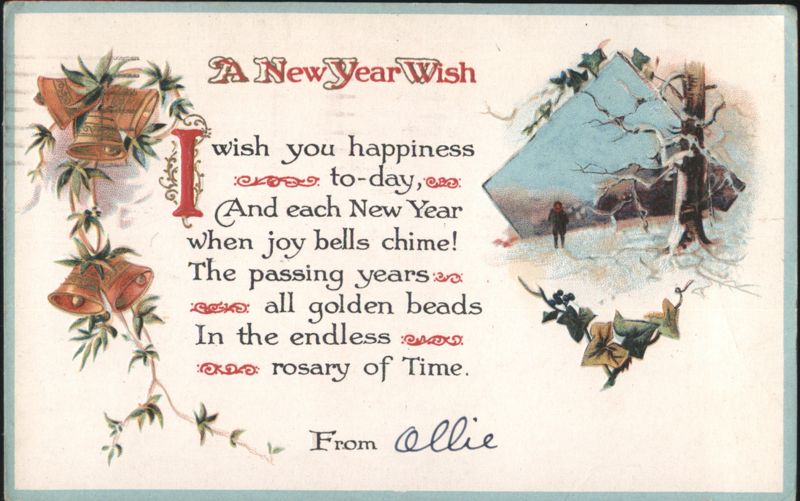 A New Year Wish
I wish you happiness
to-day,
And each New Year
when joy bells chime!
The passing years
all golden beads
In the endless
rosary of Time.
From Ollie